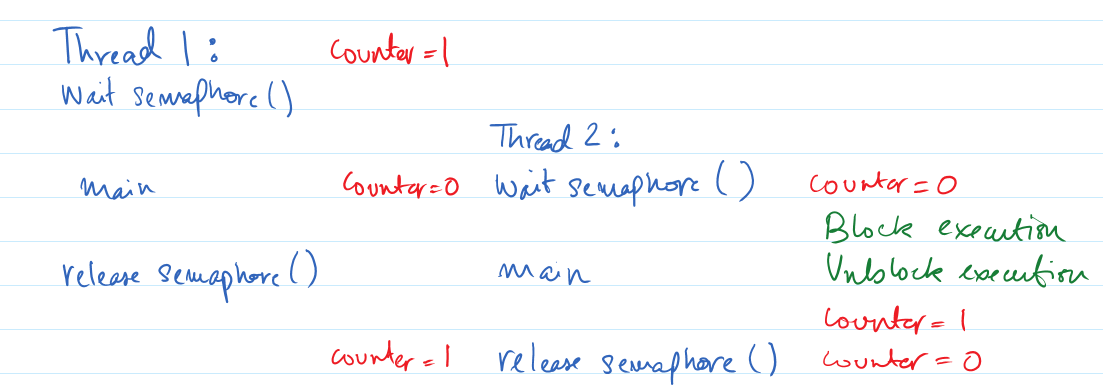 Thread 1: counter = 1
Wait semaphore()
Thread 2:
main counter=0 Wait semaphore() counter = 0
Block execution
release semaphore() main Unblock execution
counter = 1
counter = 1 release semaphore() counter = 0